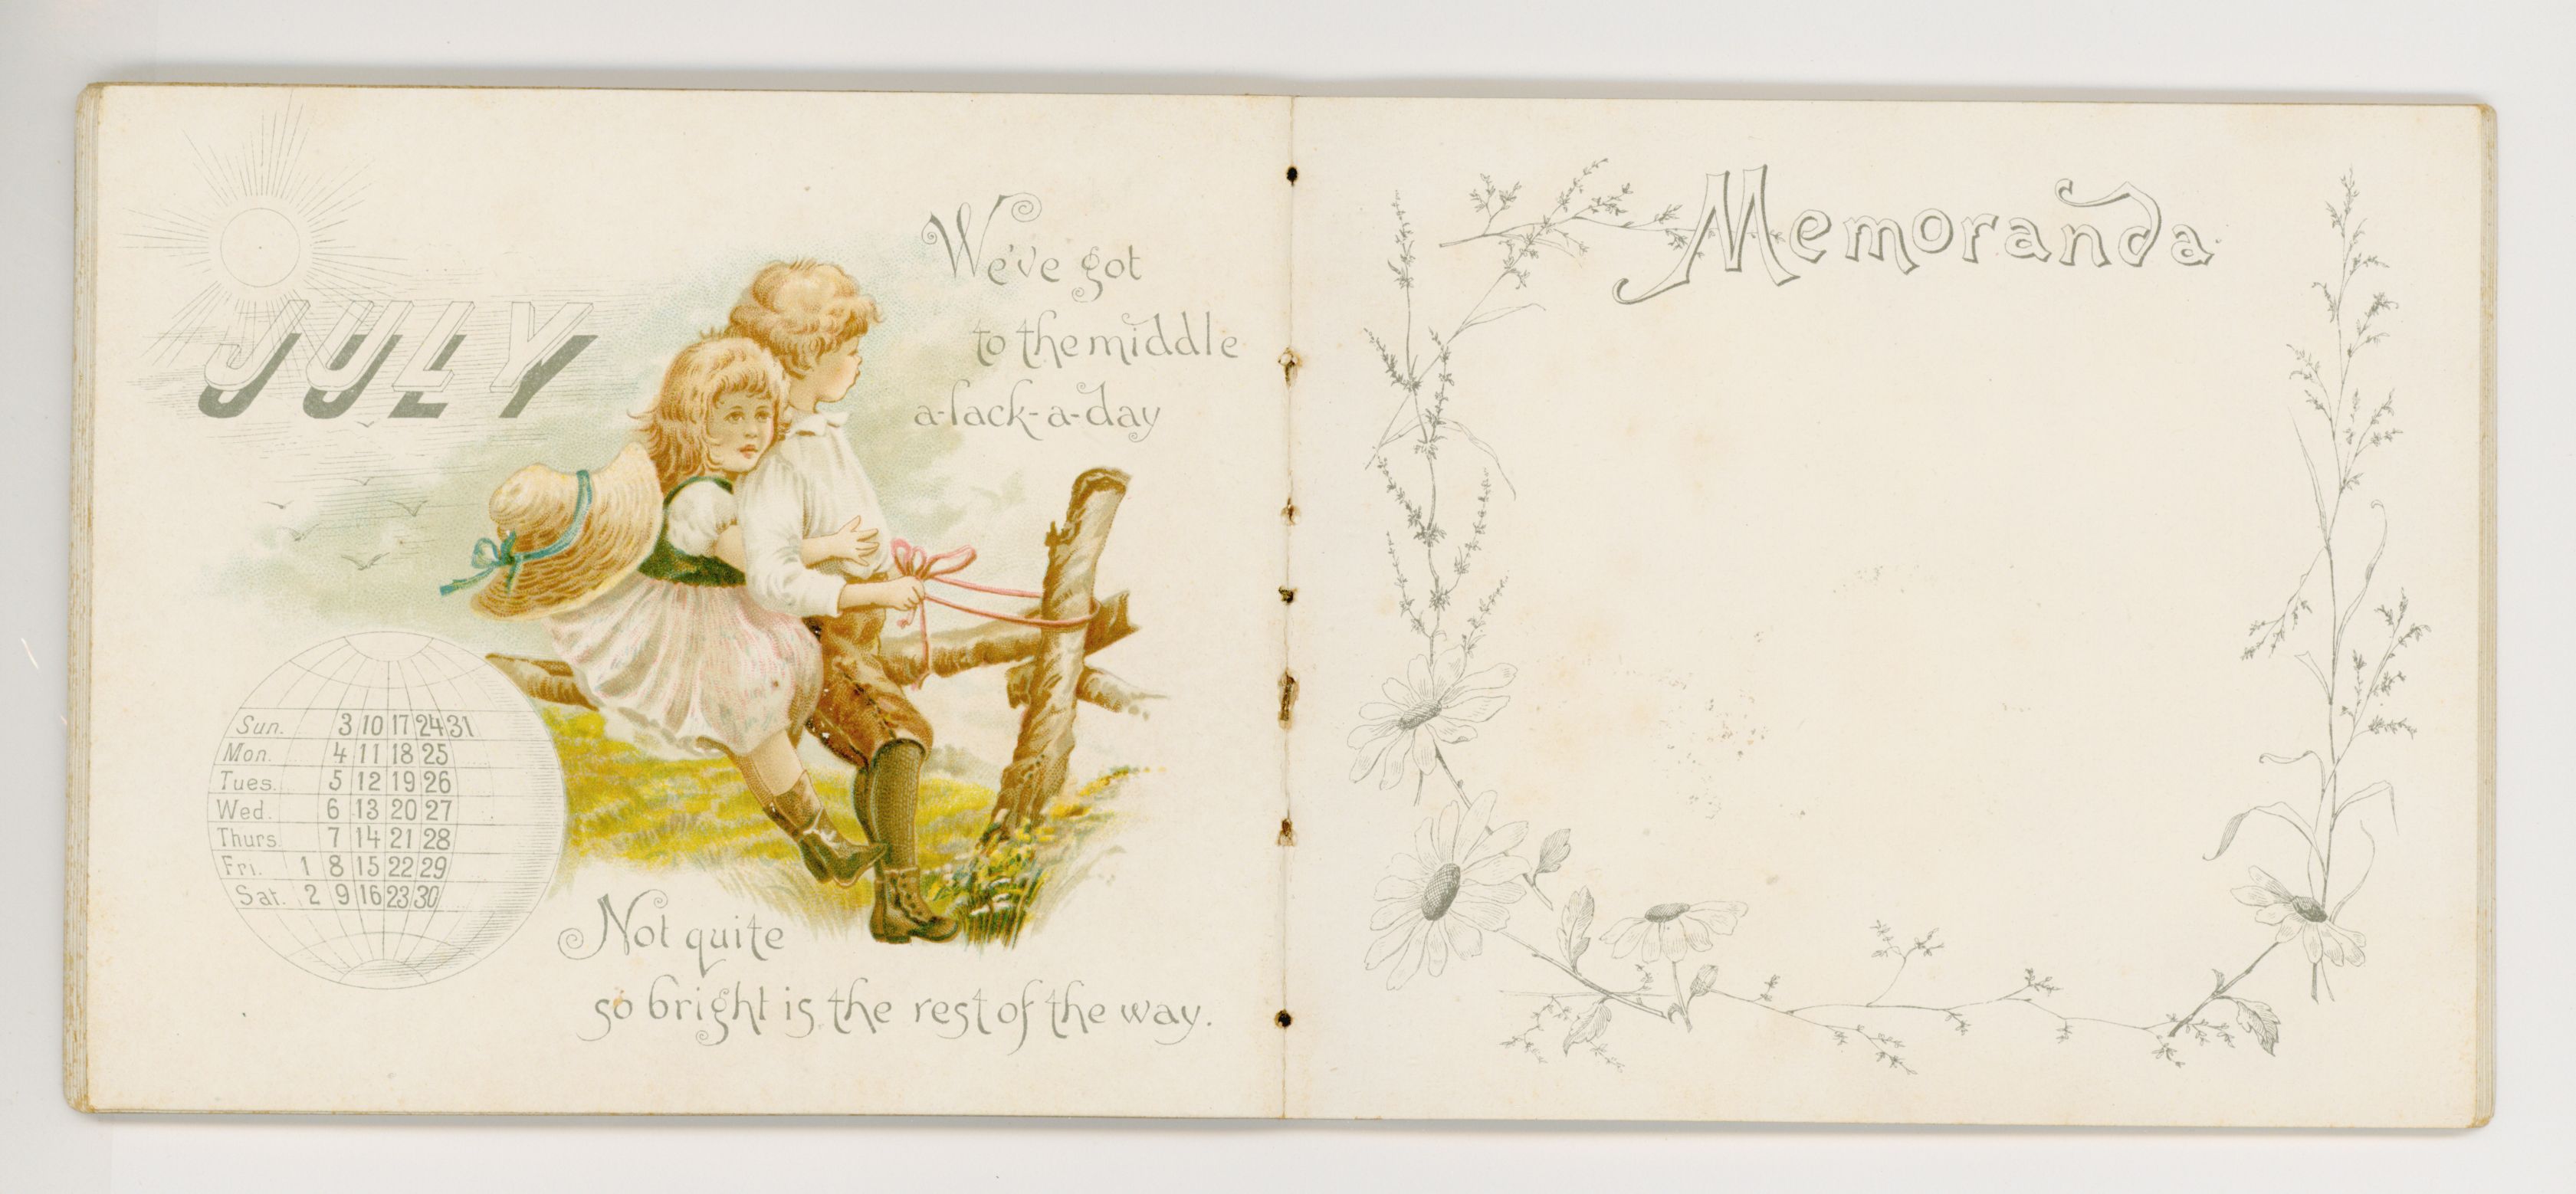 JULY
We've got
to the middle
a-lack-a-day
Sun. 3 10 17 24 31
Mon. 4 11 18 25
Tues. 5 12 19 26
Wed. 6 13 20 27
Thurs. 7 14 21 28
Fri. 1 8 15 22 29
Sat. 2 9 16 23 30
Not quite
so bright is the rest of the way.
Memoranda